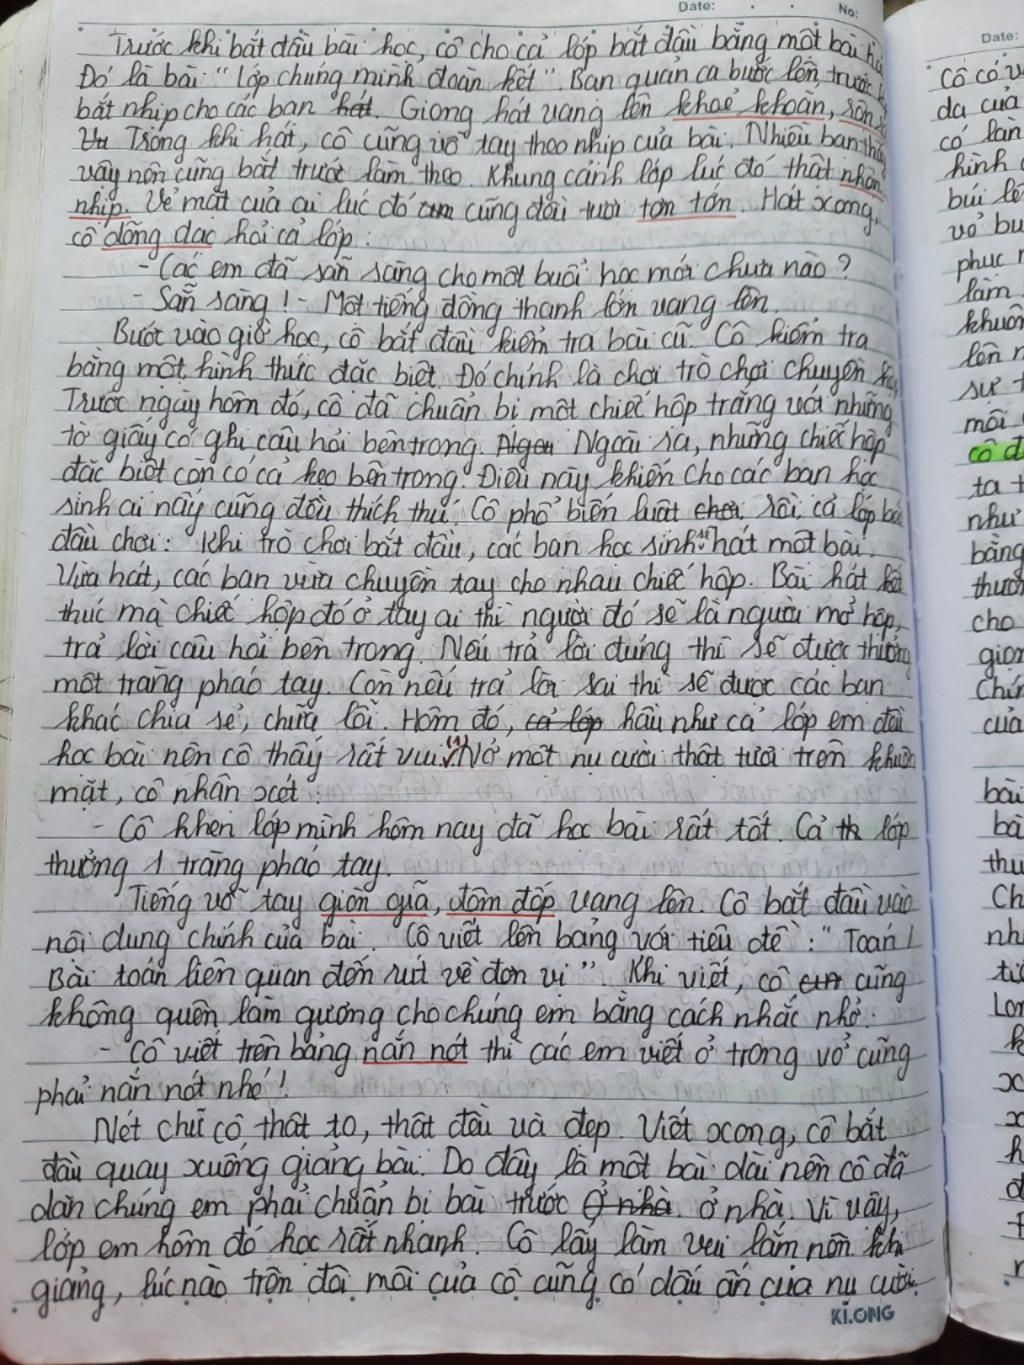 Date: No:
Trước khi bắt đầu bài học, cô cho cả lớp bắt đầu bằng một bài
Đó là bài "Lớp chúng mình đoàn kết". Bạn quản ca bước lên trước
bắt nhịp cho các bạn hát. Giọng hát vang lên khoẻ khoắn,
Trong khi hát, cô cũng vỗ tay theo nhịp của bài. Nhiều bạn
vậy nên cũng bắt trước làm theo. Khung cảnh lớp lúc đó thật nhộn
nhịp. Vẻ mặt của ai lúc đó cũng đều tươi tơn tớn. Hát xong,
cô dõng dạc hỏi cả lớp:
- Các em đã sẵn sàng cho một buổi học mới chưa nào?
- Sẵn sàng! - Một tiếng đồng thanh lớn vang lên.
Bước vào giờ học, cô bắt đầu kiểm tra bài cũ. Cô kiểm tra
bằng một hình thức đặc biệt. Đó chính là chơi trò chơi chuyền
Trước ngày hôm đó, cô đã chuẩn bị một chiếc hộp trắng với những
tờ giấy có ghi câu hỏi bên trong. Ngoài ra, những chiếc hộp
đặc biệt còn có cả kẹo bên trong. Điều này khiến cho các bạn học
sinh ai nấy cũng đều thích thú. Cô phổ biến luật chơi rồi cả lớp bắt
đầu chơi: Khi trò chơi bắt đầu, các bạn học sinh sẽ hát một bài.
Vừa hát, các bạn vừa chuyền tay cho nhau chiếc hộp. Bài hát kết
thúc mà chiếc hộp đó ở tay ai thì người đó sẽ là người mở hộp,
trả lời câu hỏi bên trong. Nếu trả lời đúng thì sẽ được thưởng
một tràng pháo tay. Còn nếu trả lời sai thì sẽ được các bạn
khác chia sẻ, chữa lỗi. Hôm đó, cả lớp hầu như cả lớp em đều
học bài nên cô thấy rất vui. Nở một nụ cười thật tươi trên khuôn
mặt, cô nhận xét:
- Cô khen lớp mình hôm nay đã học bài rất tốt. Cả th lớp
thưởng 1 tràng pháo tay.
Tiếng vỗ tay giòn giã, đôm đốp vang lên. Cô bắt đầu vào
nội dung chính của bài. Cô viết lên bảng với tiêu đề: "Toán
Bài toán liên quan đến rút về đơn vị". Khi viết, cô cũng
không quên làm gương cho chúng em bằng cách nhắc nhở:
- Cô viết trên bảng nắn nót thì các em viết ở trong vở cũng
phải nắn nót nhé!
Nét chữ cô thật to, thật đều và đẹp. Viết xong, cô bắt
đầu quay xuống giảng bài. Do đây là một bài dài nên cô đã
dặn chúng em phải chuẩn bị bài trước ở nhà. ở nhà. Vì vậy,
lớp em hôm đó học rất nhanh. Cô lấy làm vui lắm nên khi
giảng, lúc nào trên đôi môi của cô cũng có dấu ấn của nụ cười.
KLONG
Date:
Cô có
da của
có làn
hình
búi
vỏ
phục
làm
khuôn
lên
sự
môi
cô
ta
như
bằng
thườn
cho
gion
Chín
của
bài
bà
thu
Ch
nh
Lon